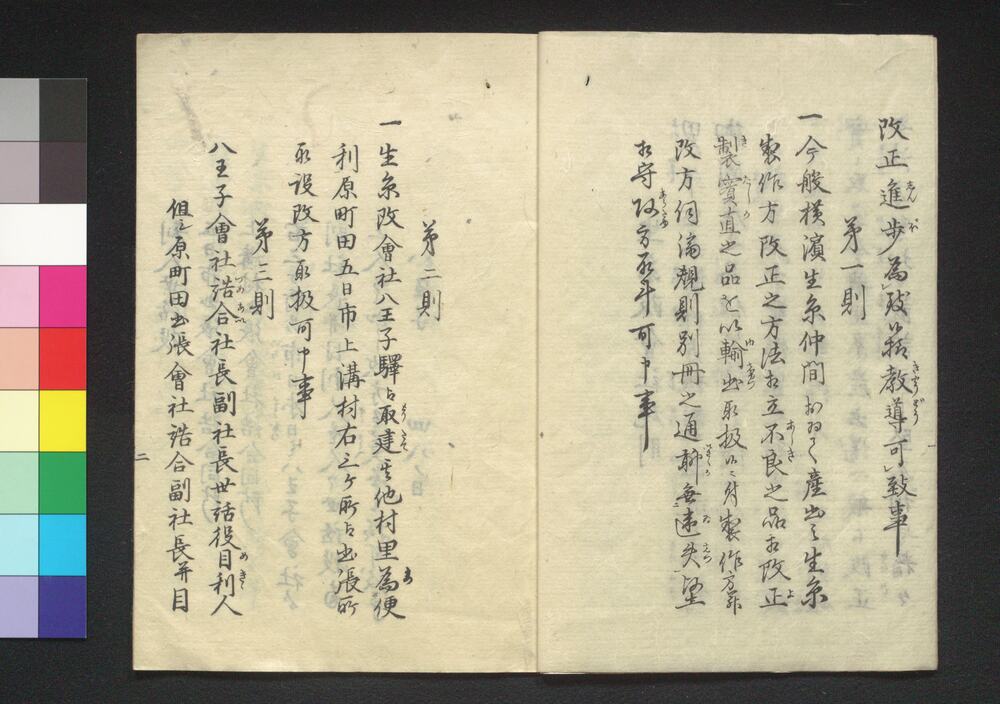 改正進歩為致，萬々教導可致事
第一則
一今般横濱生糸仲間おゐて産出之生糸
製作方改正之方法相立不良之品相改正
製實直之品を以輸出取扱候ニ付製作方
改方伺濟規則別冊之通聊無違失堅
相守改方取斗可申事
第二則
一生糸改會社八王子驛ニ取建其他村里為便
利原町田五日市上溝村右三ケ所ニ出張所
取設改方取扱可申事
第三則
八王子會社詰合社長副社長世話役目利人
但シ原町田出張會社詰合副社長并目
一
二